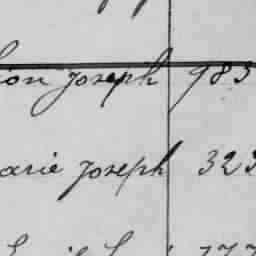 ion Joseph 983
arie Joseph 323